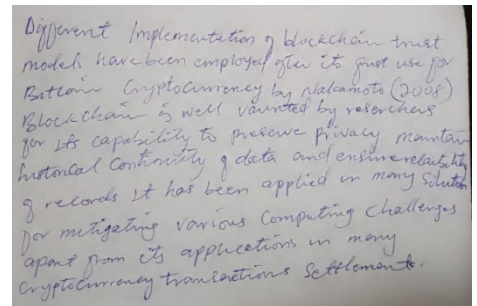 Different Implementation of blockchain trust
models have been employed after its first use for
Bitcoin Cryptocurrency by Nakamoto (2008)
Blockchain is well vaunted by reserchers
for its capability to preserve privacy maintain
historical continuity of data and ensure
of records it has been applied in many
for mitigating various computing challenges
apart from its applications in many
cryptocurrency transactions settlements.